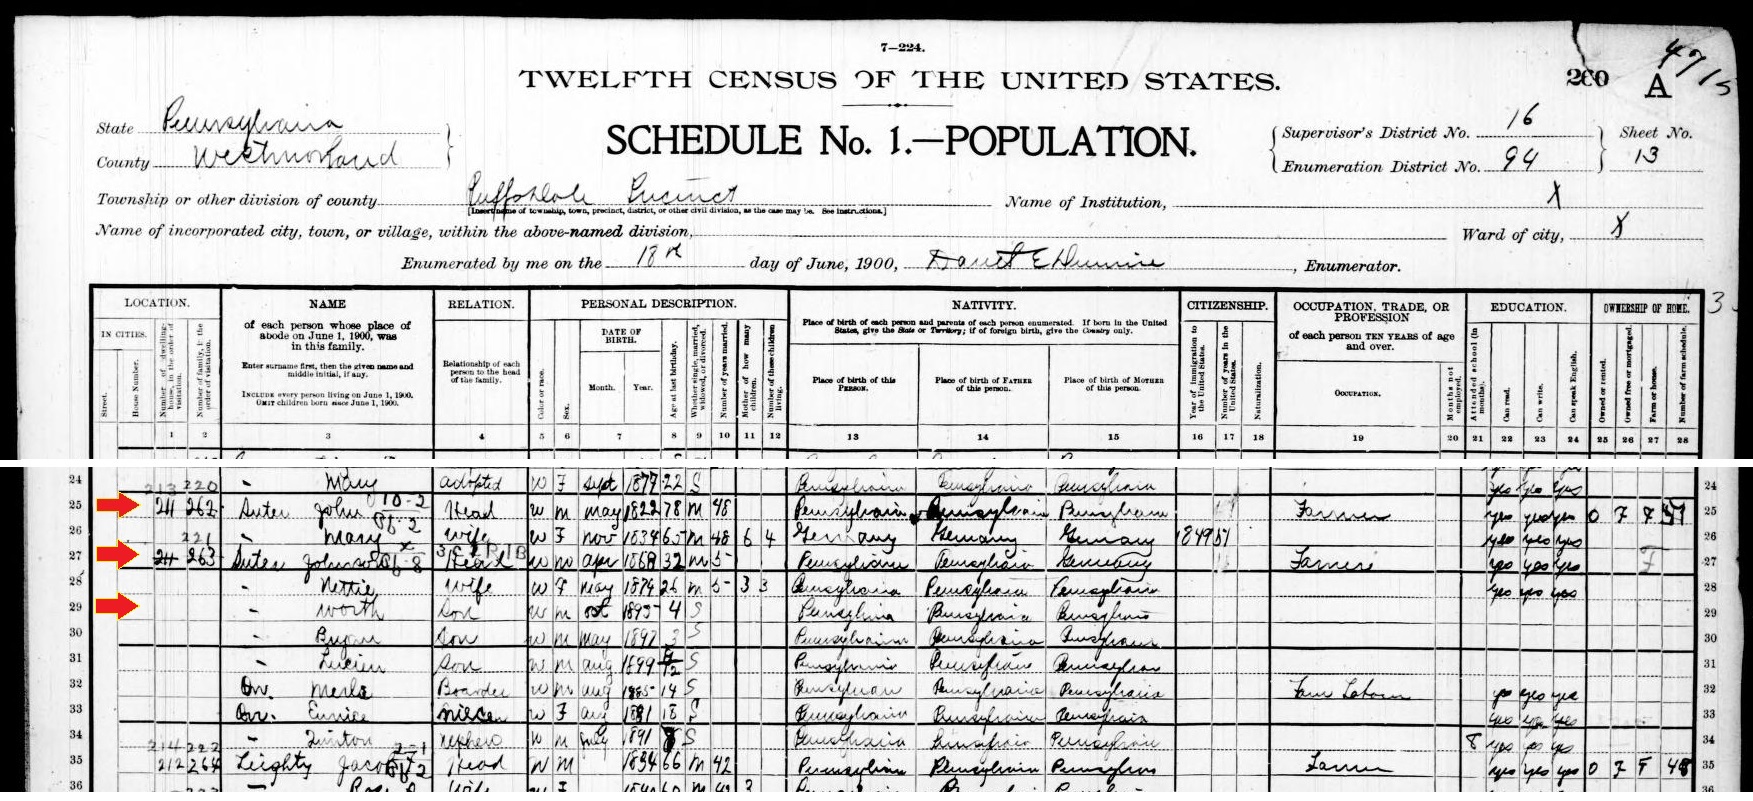 7—224.
4715
TWELFTH CENSUS OF THE UNITED STATES.
260 A
State Pennsylvania
County Westmorland
SCHEDULE No. 1.—POPULATION.
Supervisor's District No. 16
Enumeration District No. 94
Sheet No.
13
Township or other division of county Precinct
[Insert name of township, town, precinct, district, or other civil division, as the case may be. See instructions.]
Name of Institution, X
Name of incorporated city, town, or village, within the above-named division,
Ward of city, X
Enumerated by me on the 18 day of June, 1900, , Enumerator.
LOCATION. NAME RELATION. PERSONAL DESCRIPTION. NATIVITY. CITIZENSHIP. OCCUPATION, TRADE, OR PROFESSION EDUCATION. OWNERSHIP OF HOME.
IN CITIES.
Street.
House Number.
Number of dwelling-house, in the order of visitation.
Number of family, in the order of visitation.
of each person whose place of abode on June 1, 1900, was in this family.
Enter surname first, then the given name and middle initial, if any.
INCLUDE every person living on June 1, 1900.
OMIT children born since June 1, 1900.
Relationship of each person to the head of the family.
Color or race.
Sex.
DATE OF BIRTH.
Month. Year.
Age at last birthday.
Whether single, married, widowed, or divorced.
Number of years married.
Mother of how many children.
Number of these children living.
Place of birth of each person and parents of each person enumerated. If born in the United States, give the State or Territory; if of foreign birth, give the Country only.
Place of birth of this PERSON.
Place of birth of FATHER of this person.
Place of birth of MOTHER of this person.
Year of immigration to the United States.
Number of years in the United States.
Naturalization.
of each person TEN YEARS of age and over.
OCCUPATION.
Months not employed.
Attended school (in months).
Can read.
Can write.
Can speak English.
Owned or rented.
Owned free or mortgaged.
Farm or house.
Number of farm schedule.
1 2 3 4 5 6 7 8 9 10 11 12 13 14 15 16 17 18 19 20 21 22 23 24 25 26 27 28
24 213 220 Mary adopted W F Sept 1877 22 S Pennsylvania Pennsylvania Pennsylvania yes yes yes 24
25 211 262 Suter John Head W m may 1822 78 m 48 Pennsylvania Pennsylvania Pennsylvania Farmer yes yes yes O F F 25
26 221 - Mary wife W F nov 1834 65 m 48 6 4 Germany Germany Germany 1849 51 yes yes yes 26
27 263 Suter Johnson Head W m apr 1868 32 m 5 Pennsylvania Pennsylvania Germany Farmer yes yes yes F 27
28 - Nettie wife W F may 1874 26 m 5 3 3 Pennsylvania Pennsylvania Pennsylvania yes yes yes 28
29 - Worth Son W m oct 1895 4 S Pennsylvania Pennsylvania Pennsylvania 29
30 - Son W m may 1897 3 S Pennsylvania Pennsylvania Pennsylvania 30
31 - Lucien Son W m aug 1899 S Pennsylvania Pennsylvania Pennsylvania 31
32 Merle Boarder W m aug 1885 14 S Pennsylvania Pennsylvania Pennsylvania Farm Laborer yes yes yes 32
33 Eunice W F aug 1881 18 S Pennsylvania Pennsylvania Pennsylvania yes yes yes 33
34 214 222 - Quinton nephew W m July 1891 8 S Pennsylvania Pennsylvania Pennsylvania 8 yes yes yes 34
35 212 264 Leighty Jacob Head W m 1834 66 m 42 Pennsylvania Pennsylvania Pennsylvania Farmer yes yes yes O F F 48 35
36 36